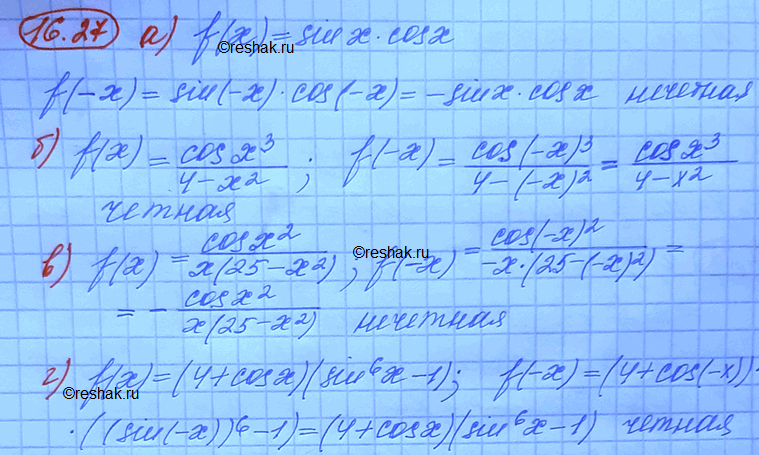 16.27 а) f(x) = sin x · cos x
©reshak.ru
f(-x) = sin(-x) · cos(-x) = -sin x · cos x нечетная
б) f(x) = cos x³ / (4 - x²) ; f(-x) = cos(-x)³ / (4 - (-x)²) = cos x³ / (4 - x²)
четная
в) f(x) = cos x² / (x(25 - x²)) ; f(-x) = cos(-x)² / (-x · (25 - (-x)²)) =
©reshak.ru
= - cos x² / (x(25 - x²)) нечетная
г) f(x) = (4 + cos x)(sin⁶x - 1); f(-x) = (4 + cos(-x)) ·
©reshak.ru
· ((sin(-x))⁶ - 1) = (4 + cos x)(sin⁶x - 1) четная